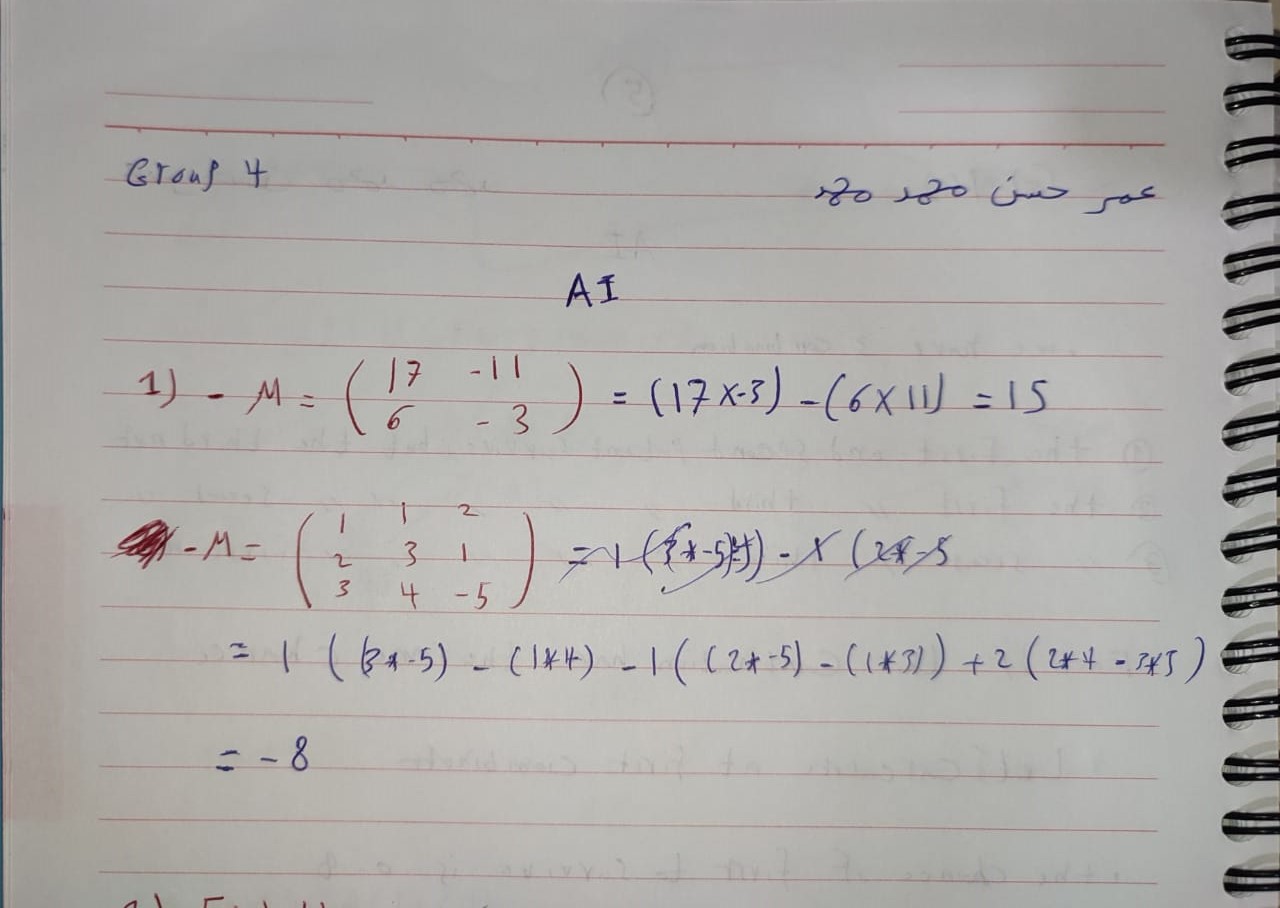 Group 4
عمر حسن محمد محمد
AI
1) - M = ( 17 -11
6 -3 ) = (17 x -3) - (6 x 11) = 15
- M = ( 1 1 2
2 3 1
3 4 -5 )
= 1 ( (3*-5) - (1*4) - 1 ( (2*-5) - (1*3) ) + 2 ( 2*4 - 3*3 )
= -8